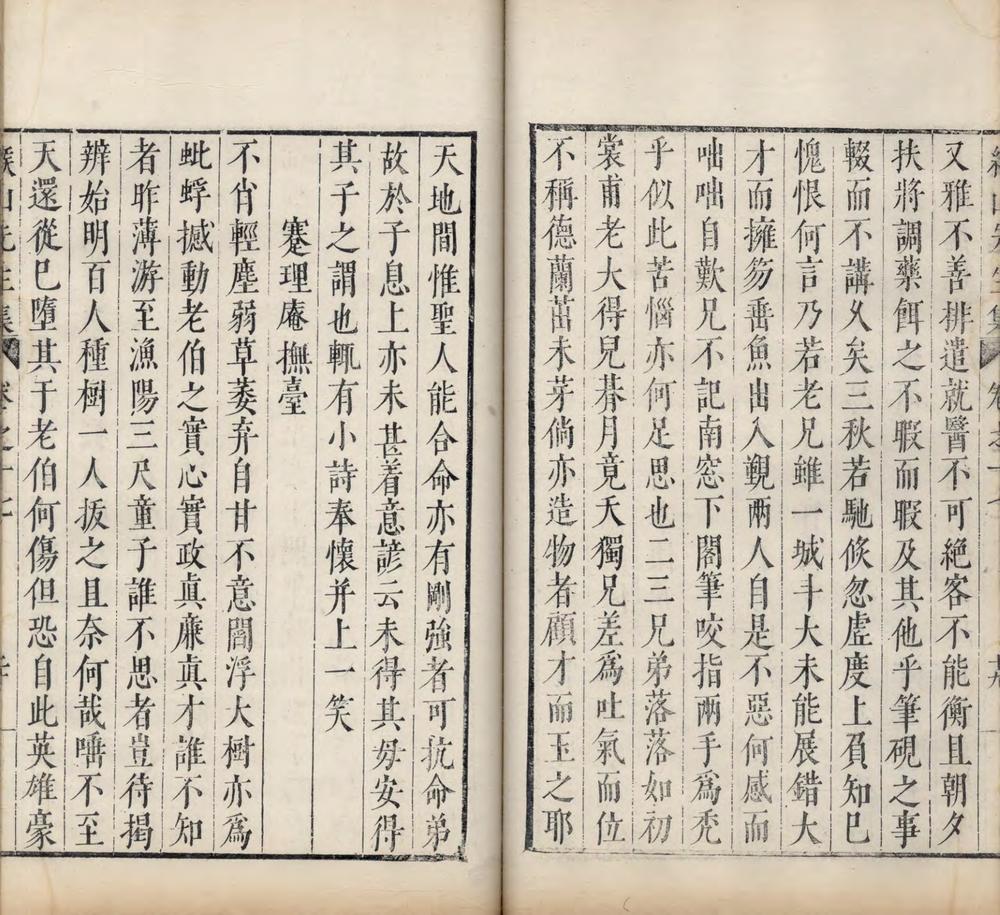 緱山先生集 卷之十 十九
又雅不善排遣就醫不可絕客不能衡且朝夕
扶將調藥餌之不暇而暇及其他乎筆硯之事
輟而不講乆矣三秋若馳倏忽虛度上負知已
愧恨何言乃若老兄雖一城斗大未能展錯大
才而擁笏垂魚出入覲兩人自是不惡何感而
咄咄自歎兄不記南窓下閣筆咬指兩手爲禿
乎似此苦惱亦何足思也二三兄弟落落如初
裳甫老大得兒朞月竟夭獨兄差爲吐氣而位
不稱德蘭茁未芽倘亦造物者顧才而玉之耶
天地間惟聖人能合命亦有剛強者可抗命弟
故於子息上亦未甚着意諺云未得其毋安得
其子之謂也輒有小詩奉懷并上一笑
蹇理庵撫臺
不肖輕塵弱草萎弃自甘不意閻浮大樹亦爲
蚍蜉撼動老伯之實心實政眞廉眞才誰不知
者昨薄游至漁陽三尺童子誰不思者豈待揭
辨始明百人種樹一人拔之且奈何哉唾不至
天還從巳墮其于老伯何傷但恐自此英雄豪
緱山先生集 卷之十